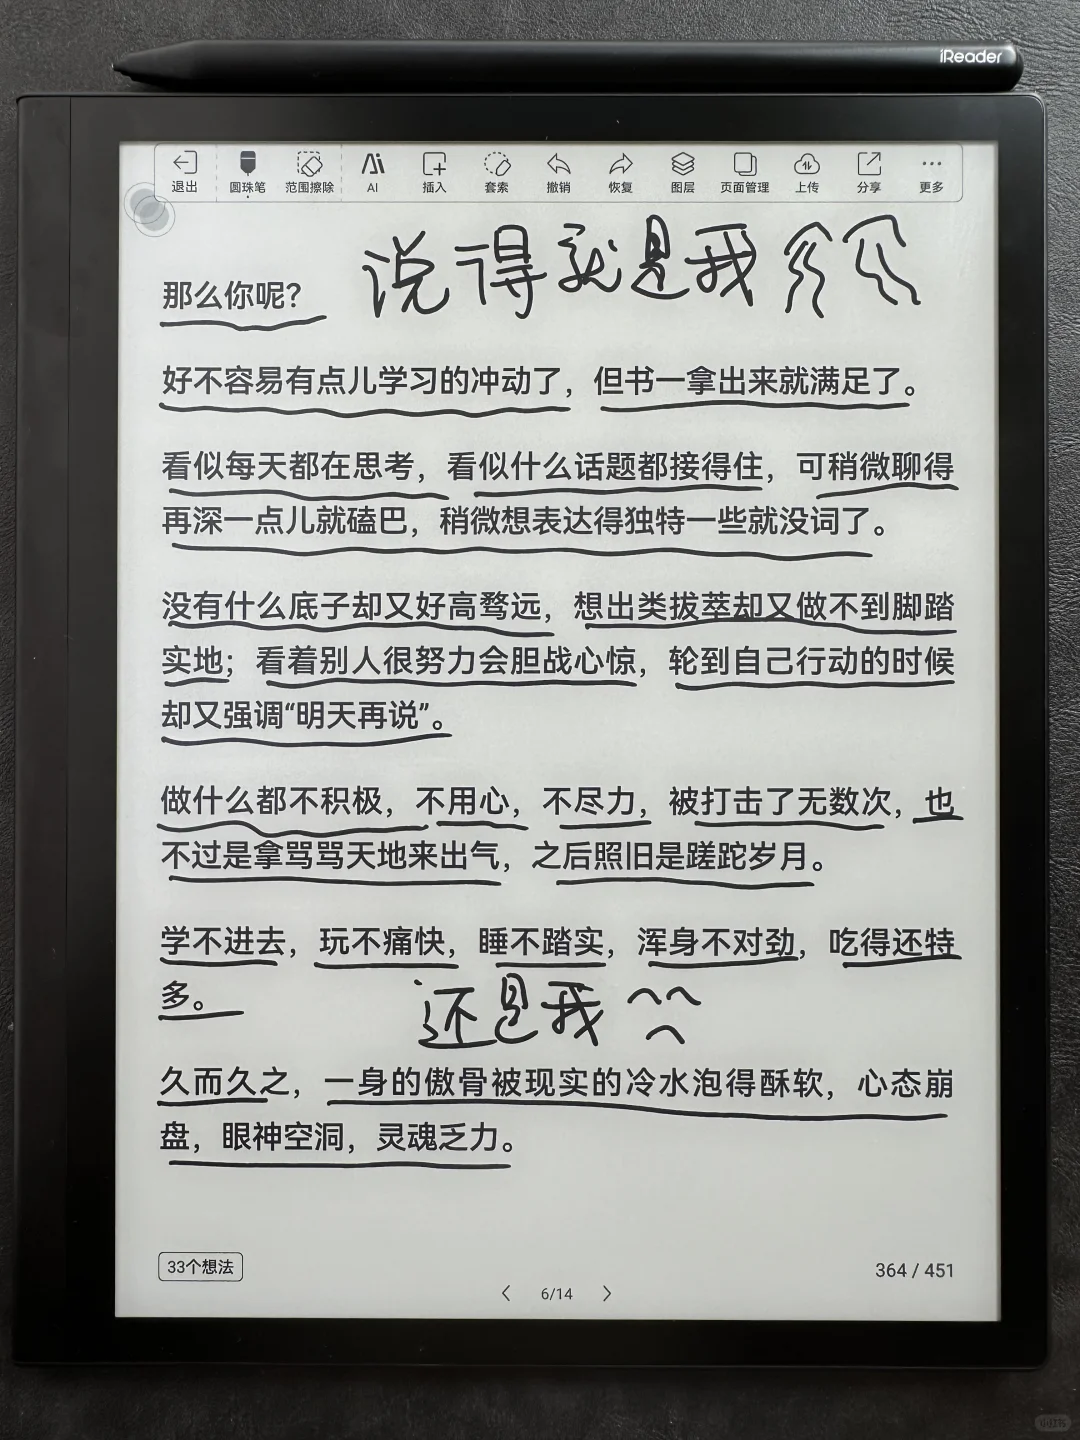 iReader
退出 圆珠笔 范围擦除 AI 插入 套索 撤销 恢复 图层 页面管理 上传 分享 更多
说得就是我
那么你呢？
好不容易有点儿学习的冲动了，但书一拿出来就满足了。
看似每天都在思考，看似什么话题都接得住，可稍微聊得
再深一点儿就磕巴，稍微想表达得独特一些就没词了。
没有什么底子却又好高骛远，想出类拔萃却又做不到脚踏
实地；看着别人很努力会胆战心惊，轮到自己行动的时候
却又强调“明天再说”。
做什么都不积极，不用心，不尽力，被打击了无数次，也
不过是拿骂骂天地来出气，之后照旧是蹉跎岁月。
学不进去，玩不痛快，睡不踏实，浑身不对劲，吃得还特
多。
还是我
久而久之，一身的傲骨被现实的冷水泡得酥软，心态崩
盘，眼神空洞，灵魂乏力。
33个想法
364 / 451
6/14
小红书